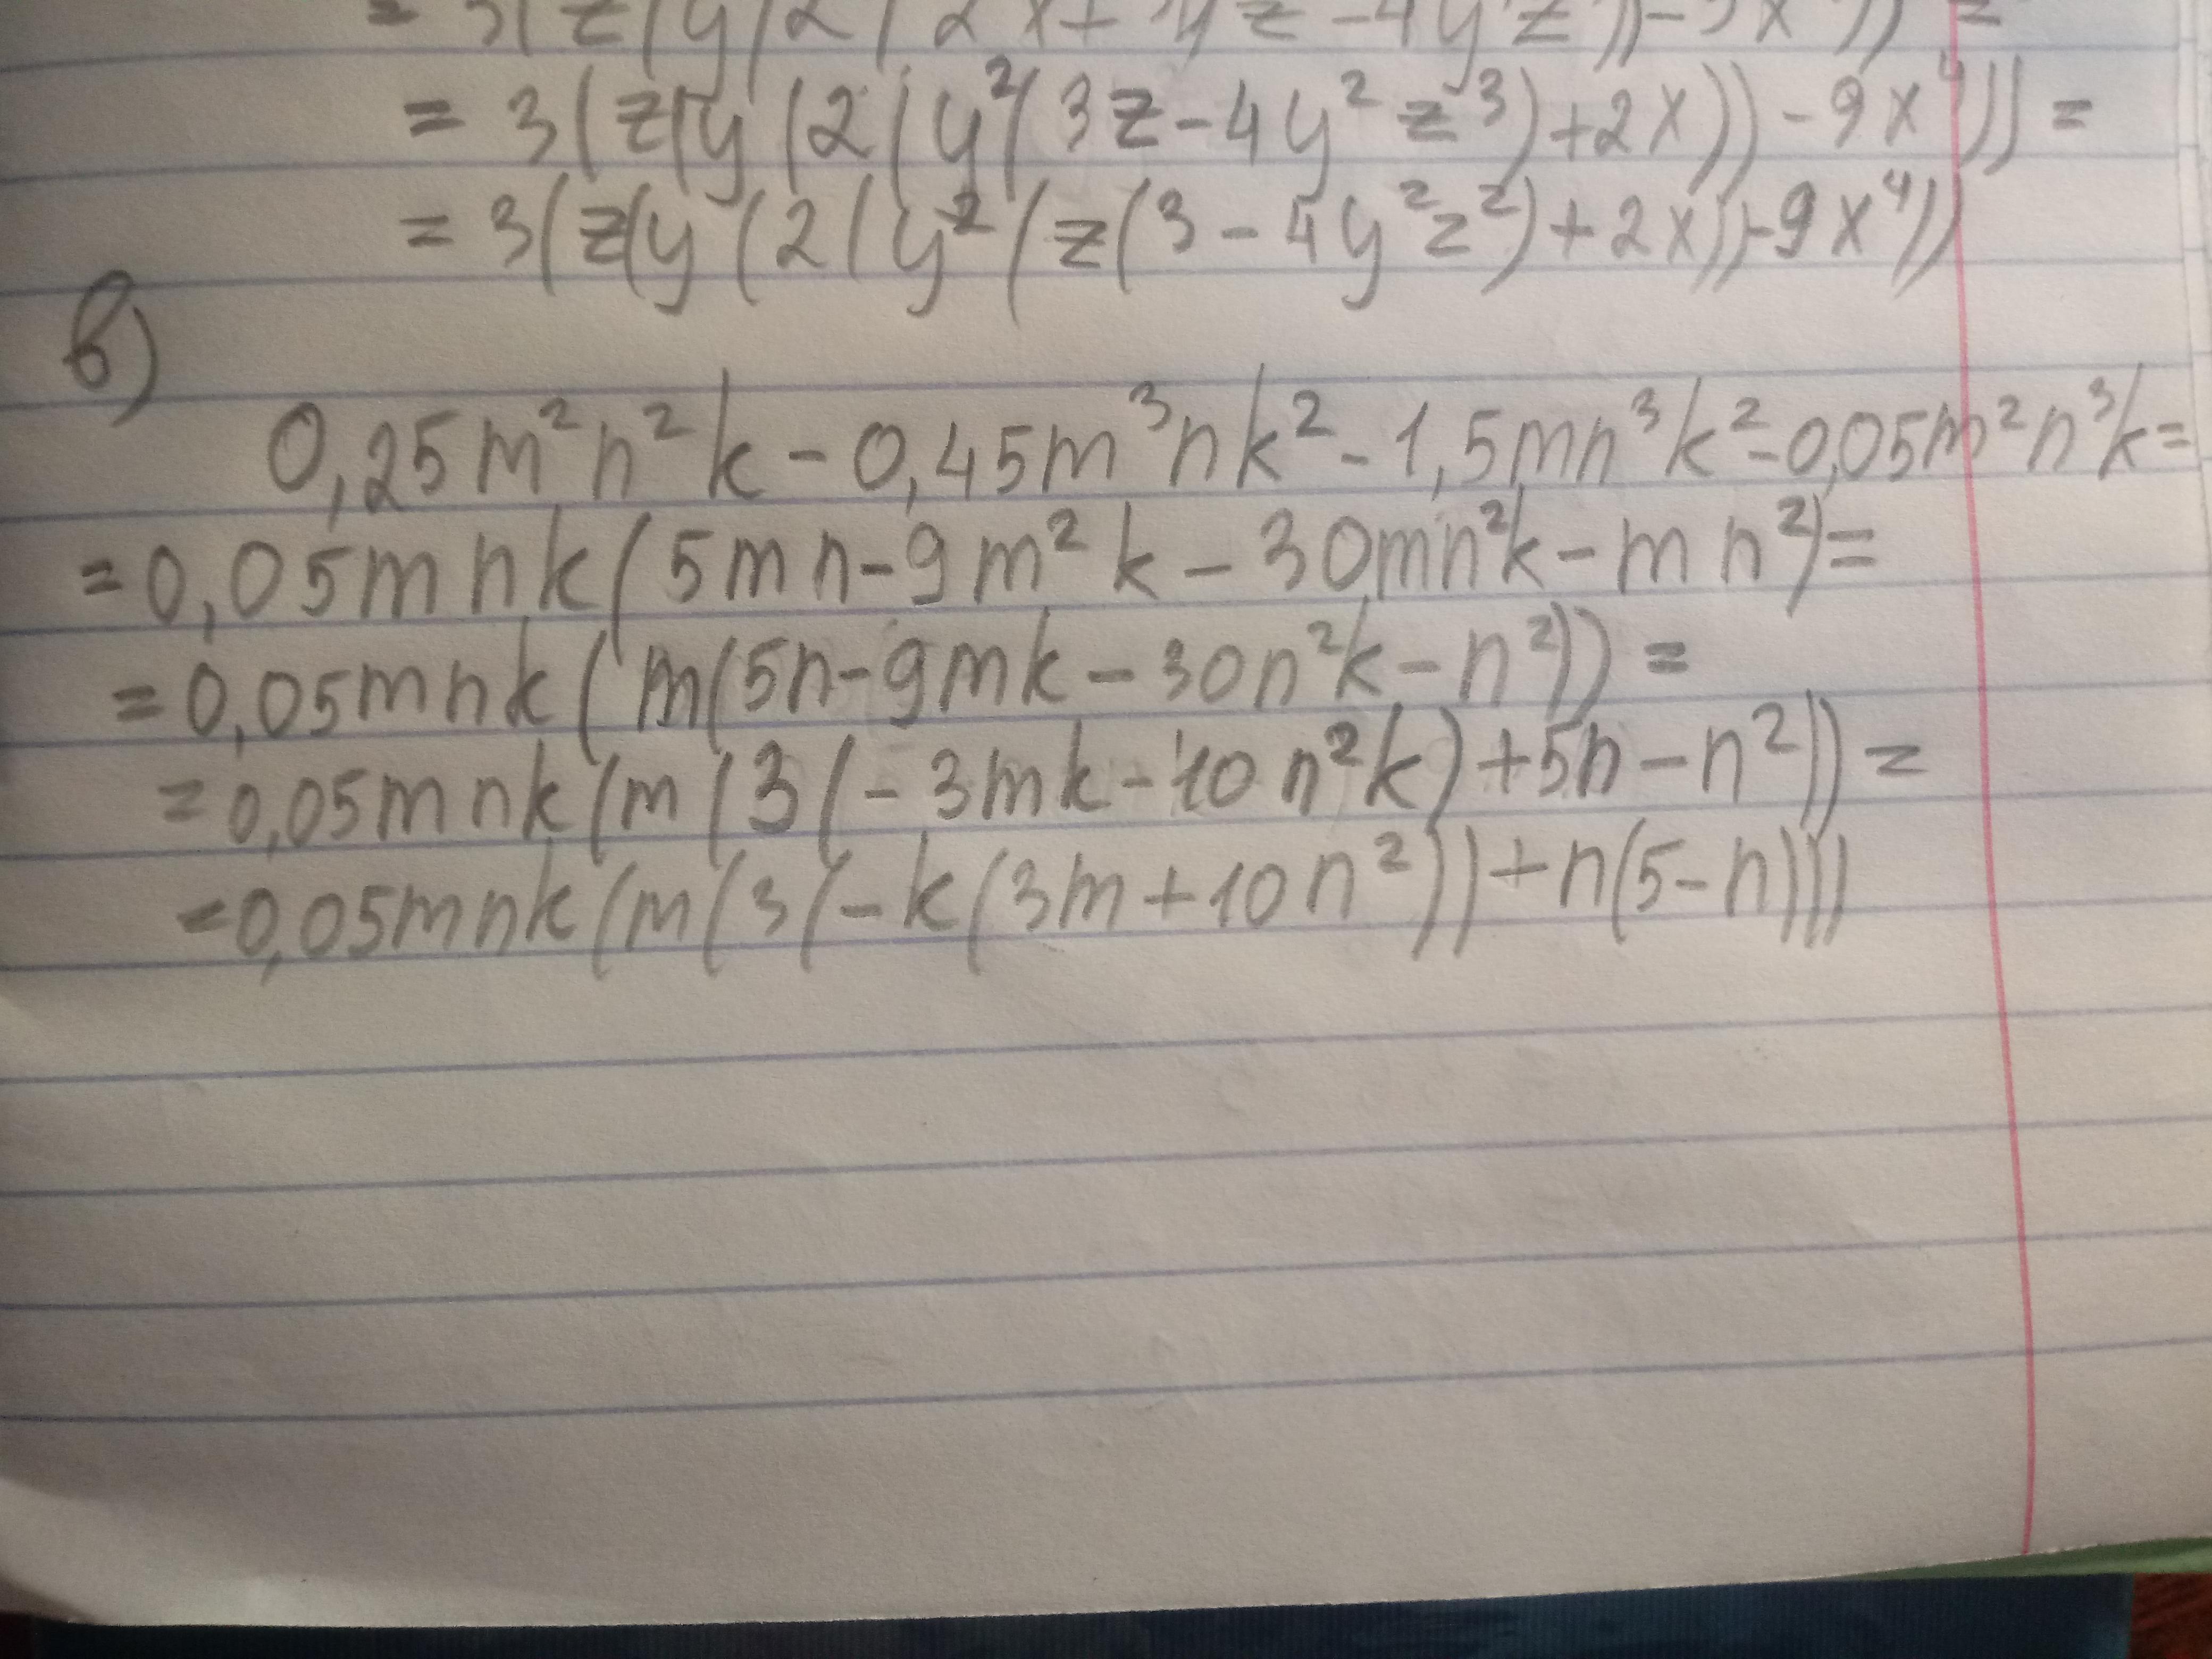 = 3(z(y(2(y²(3z-4y²z³)+2x))-9x⁴)) =
= 3(z(y(2(y²(z(3-4y²z²)+2x))-9x⁴))
в)
0,25m²n²k - 0,45m³nk² - 1,5mn³k² - 0,05m²n³k =
= 0,05mnk(5mn-9m²k-30mn²k-mn²) =
= 0,05mnk(m(5n-9mk-30n²k-n²)) =
= 0,05mnk(m(3(-3mk-10n²k)+5n-n²)) =
= 0,05mnk(m(3(-k(3m+10n²))+n(5-n)))